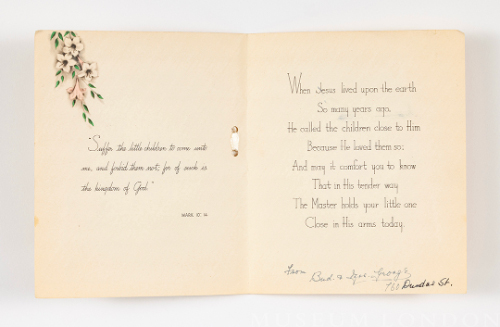 "Suffer the little children to come unto
me, and forbid them not, for of such is
the kingdom of God."
MARK 10: 14
When Jesus lived upon the earth
So many years ago,
He called the children close to Him
Because He loved them so;
And may it comfort you to know
That in His tender way
The Master holds your little one
Close in His arms today.
From
Bud &
Dundas St.